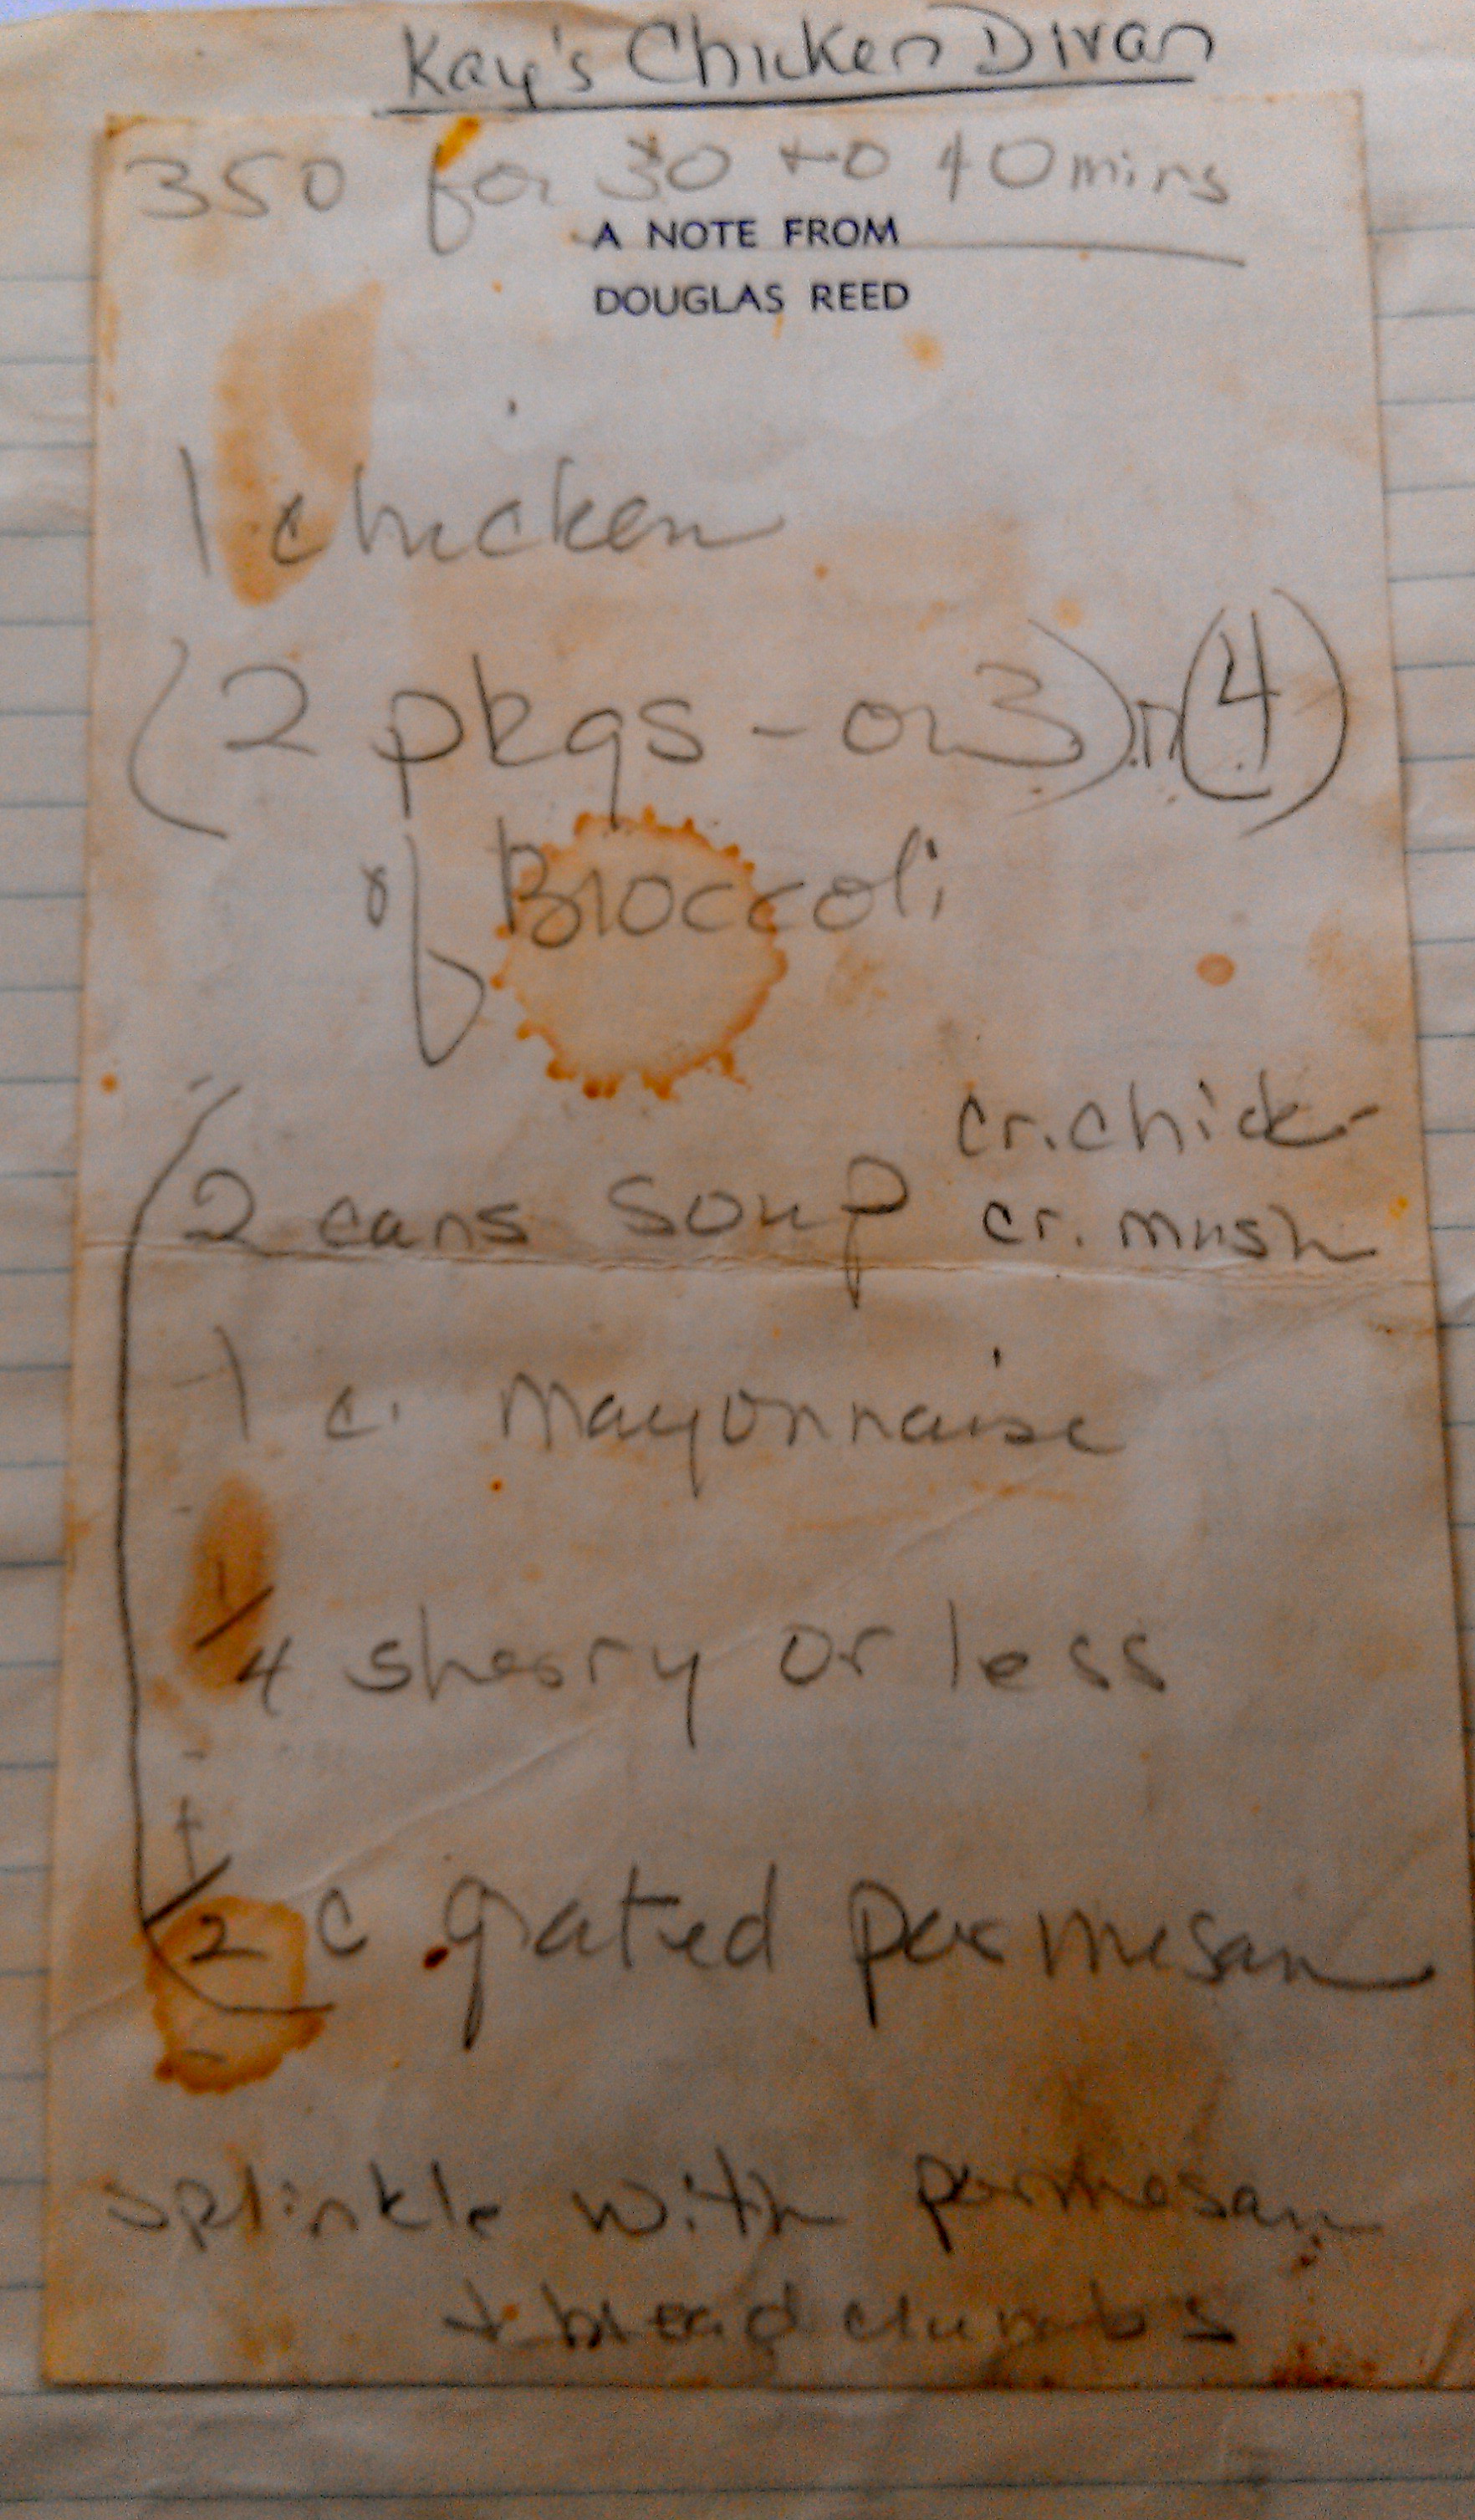 Kay's Chicken Divan
350 for 30 to 40 mins
A NOTE FROM
DOUGLAS REED
1 chicken
(2 pkgs - or 3) or (4)
of Broccoli
cr. chick
2 cans soup cr. mush
1 c. mayonnaise
1/4 sherry or less
1/2 c grated parmesan
sprinkle with parmesan
+ bread crumbs